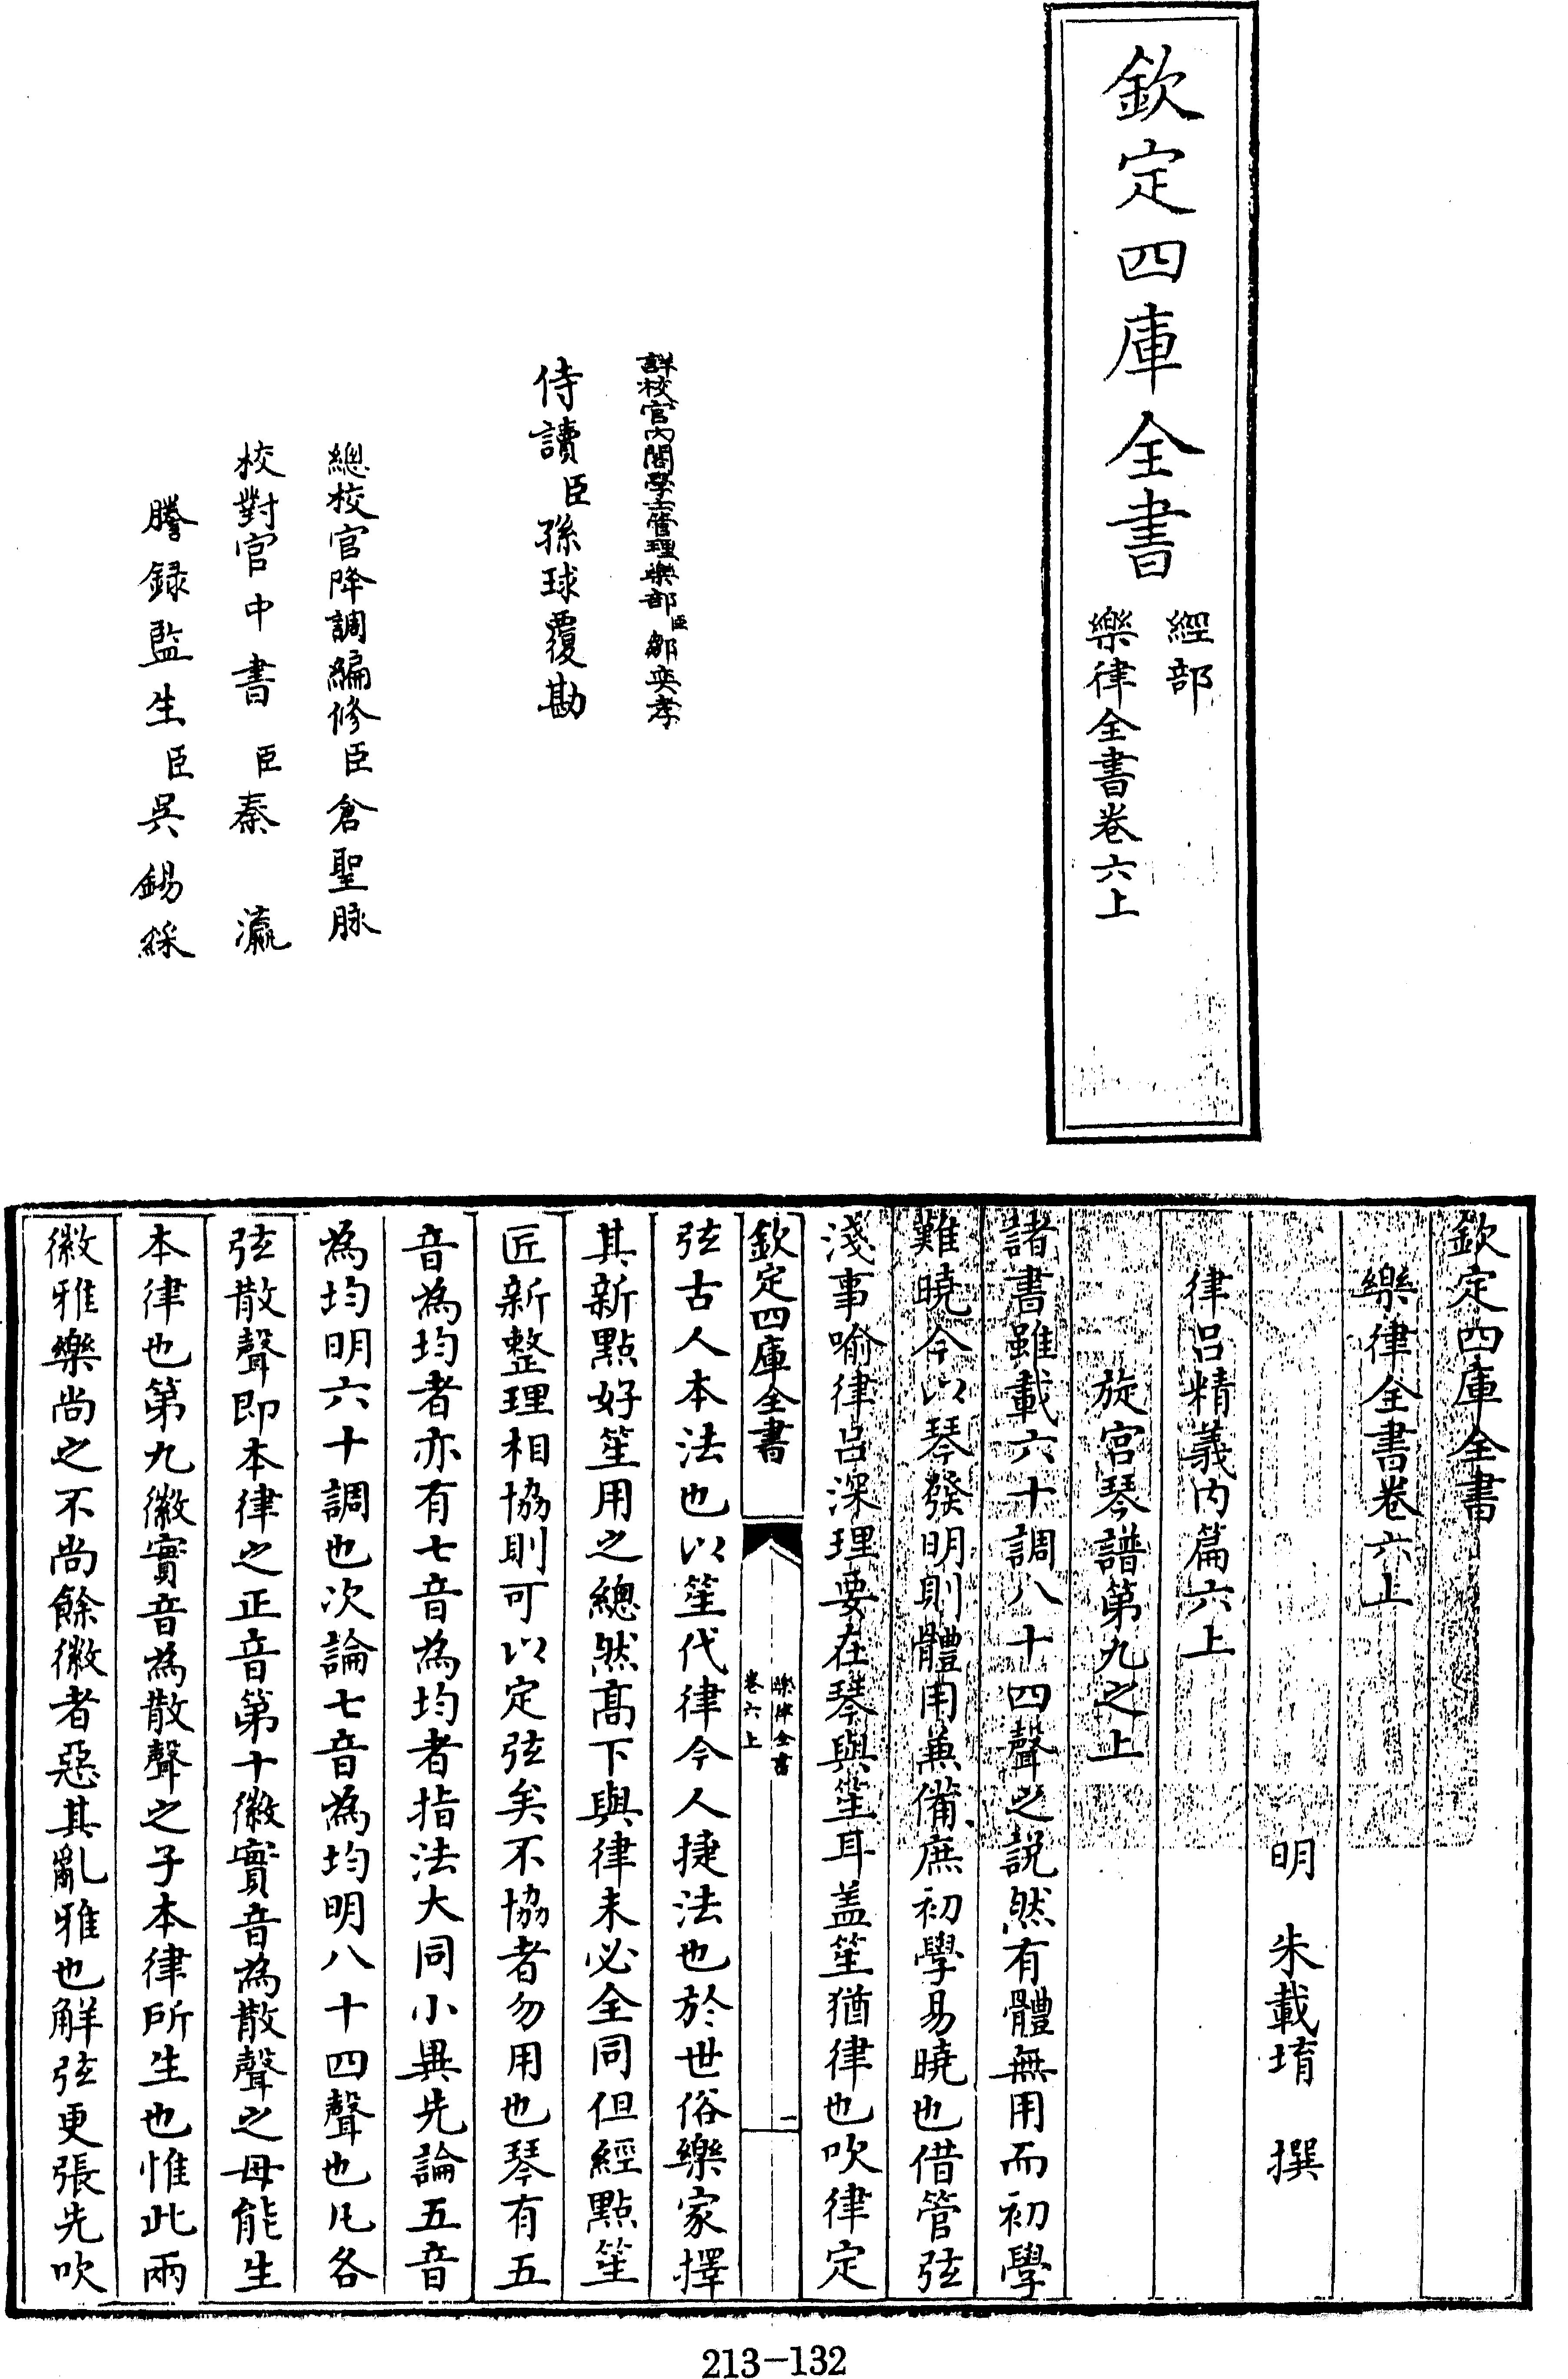 欽定四庫全書
經部
樂律全書卷六上
詳校官內閣學士管理樂部臣鄒奕孝
侍讀臣孫球覆勘
總校官降調編修臣倉聖脉
校對官中書臣秦瀛
謄錄監生臣吳錫綵
欽定四庫全書
樂律全書卷六上
明 朱載堉 撰
律呂精義內篇六上
旋宮琴譜第九之上
諸書雖載六十調八十四聲之説然有體無用而初學
難曉今以琴發明則體用兼備庶初學易曉也借管弦
淺事喻律呂深理要在琴與笙耳盖笙猶律也吹律定
欽定四庫全書
樂律全書
卷六上
一
弦古人本法也以笙代律今人捷法也於世俗樂家擇
其新點好笙用之總然髙下與律未必全同但經點笙
匠新整理相協則可以定弦矣不協者勿用也琴有五
音為均者亦有七音為均者指法大同小異先論五音
為均明六十調也次論七音為均明八十四聲也凡各
弦散聲即本律之正音第十徽實音為散聲之母能生
本律也第九徽實音為散聲之子本律所生也惟此兩
徽雅樂尚之不尚餘徽者惡其亂雅也解弦更張先吹
213-132